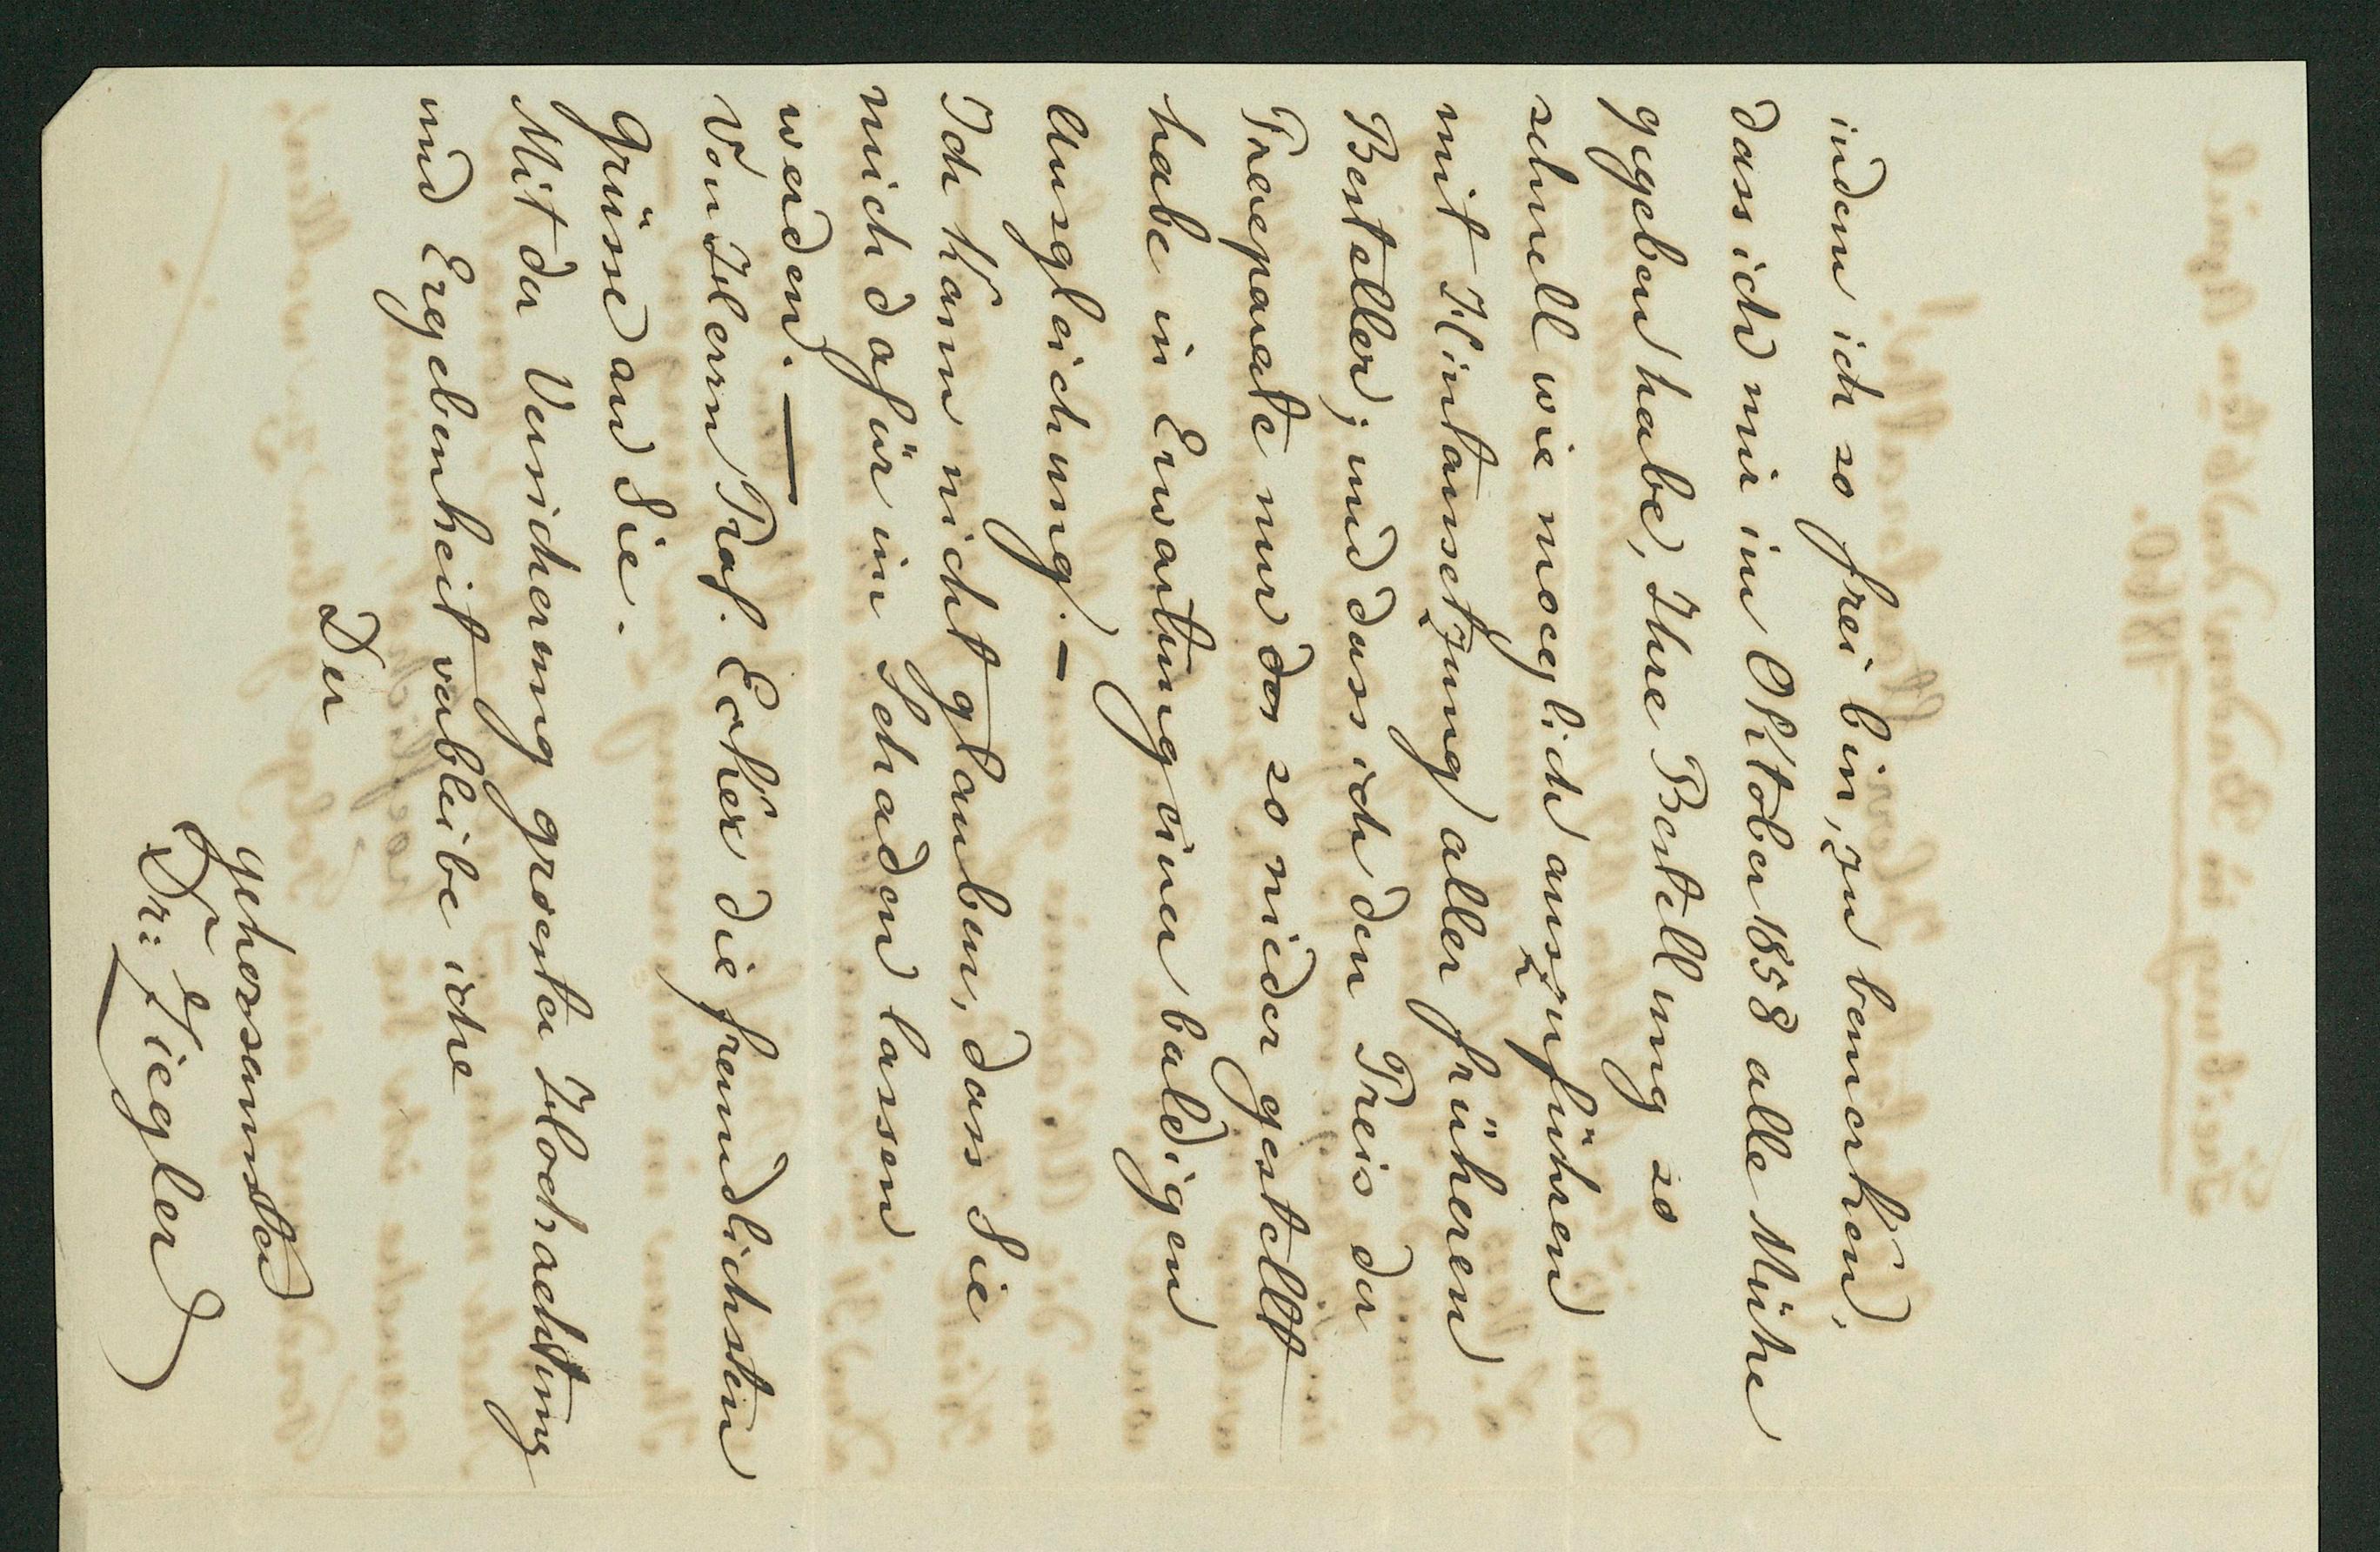 indem ich so frei bin, zu bemerken,
dass ich mir im Oktober 1858 alle Mühe
gegeben habe, Ihre Bestellung so
schnell wie moeglich auszuführen
mit Hintansetzung aller früheren
Besteller; und dass ich den Preis der
Praeparate nur das so nieder gestellt
habe in Erwartung einer baldigen
Ausgleichung. –
Ich kann nicht glauben, dass Sie
mich dafür im Schaden lassen
werden. —
Von Herrn Prof. Ecker die freundlichsten
Grüsse an Sie.
Mit der Versicherung groester Hochachtung
und Ergebenheit verbleibe iche
Der
gehorsamster
Dr: Ziegler